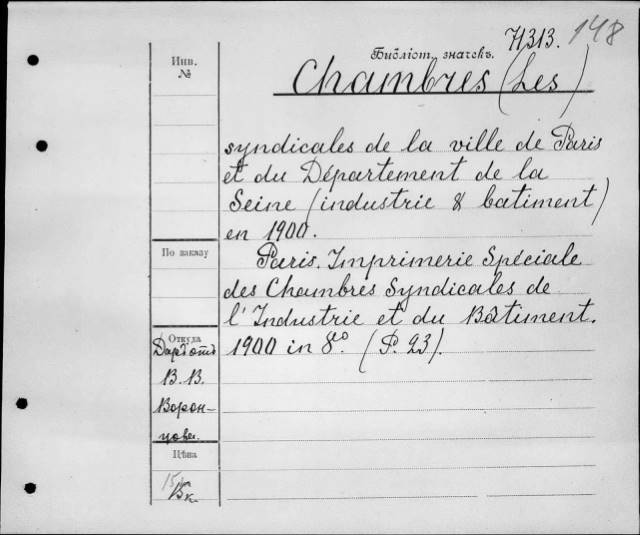 71313. 148
Инв.
№
Библіот. значекъ.
Chambres (Les)
syndicales de la ville de Paris
et du Département de la
Seine (industrie & batiment)
en 1900.
По заказу
Paris. Imprimerie Spéciale
des Chambres Syndicales de
l'Industrie et du Bâtiment.
Откуда
1900 in 8º. (P. 23).
Даръ отъ
В. В.
Ворон-
Цѣна
15